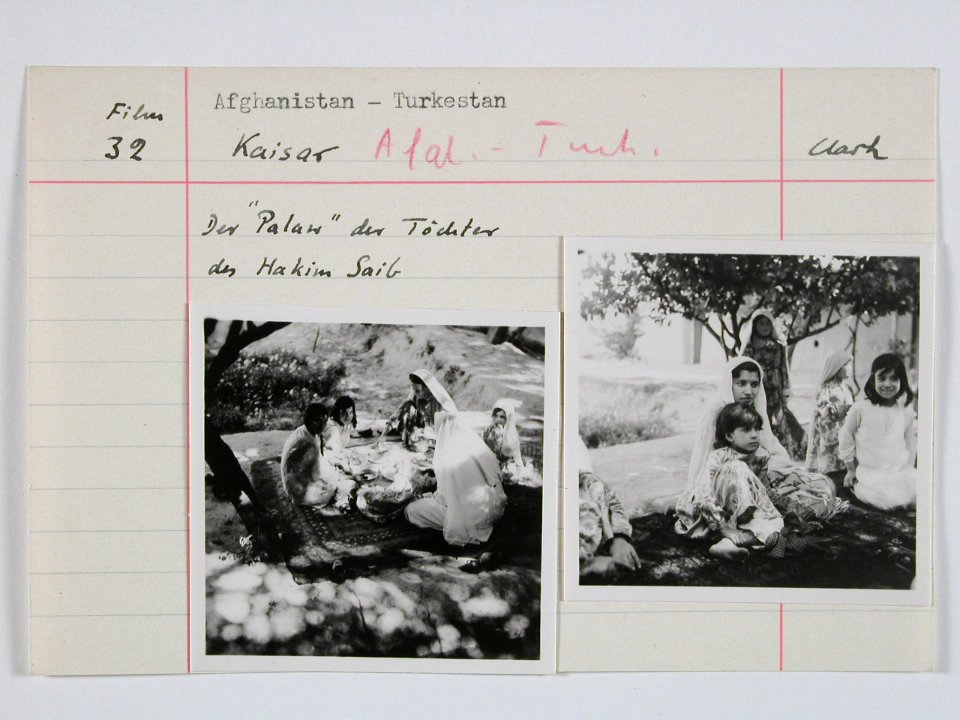 Film
32
Afghanistan - Turkestan
Kaisar Afgh. - Turk.
Clark
Der "Palaw" der Töchter
des Hakim Saib